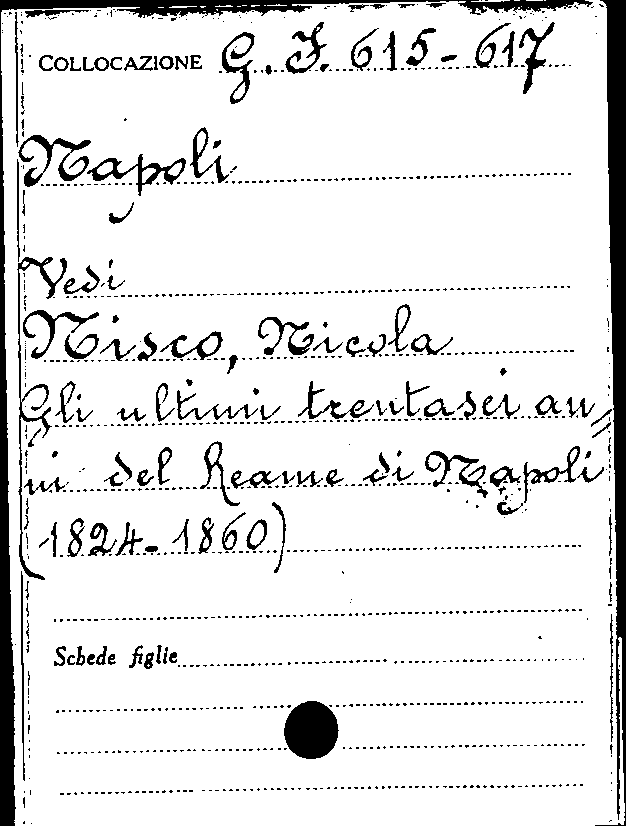 COLLOCAZIONE G. I. 615-617
Napoli
Vedi
Nisco, Nicola
Gli ultimi trentasei an=
ni del Reame di Napoli
(1824-1860)
Schede figlie